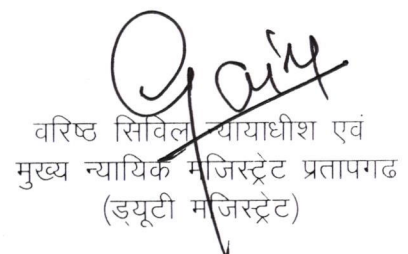 वरिष्ठ सिविल न्यायाधीश एवं
मुख्य न्यायिक मजिस्ट्रेट प्रतापगढ
(ड्यूटी मजिस्ट्रेट)